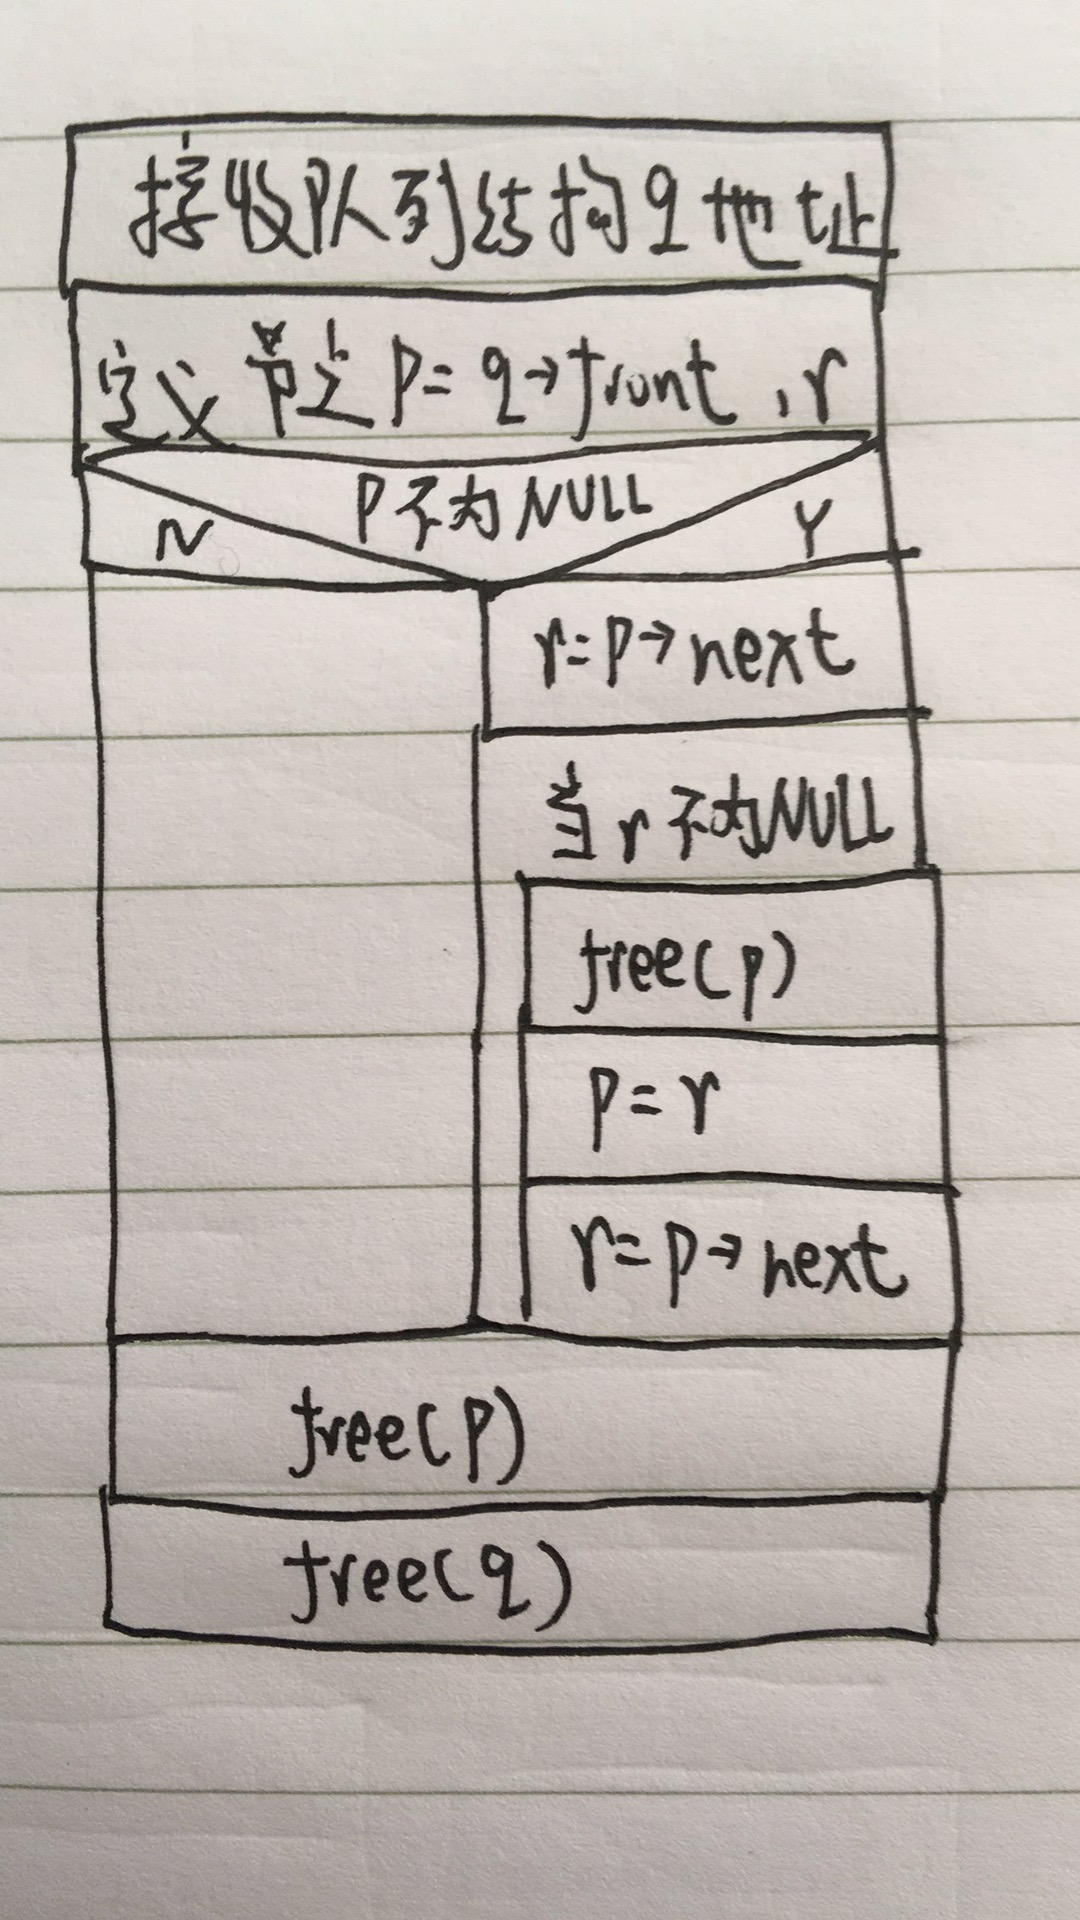 接收队列结构q地址
定义节点p=q→front,r
P不为NULL
N
Y
r=p→next
当r不为NULL
free(p)
p=r
r=p→next
free(p)
free(q)